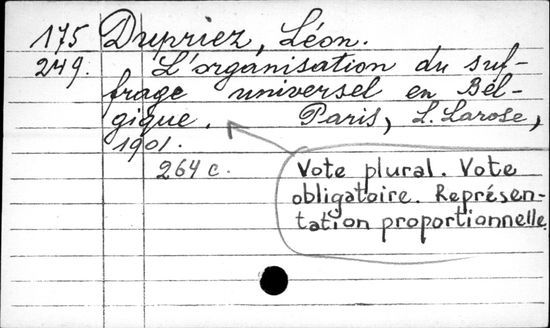 175 Dupriez, Léon.
249. L'organisation du suf-
frage universel en Bel-
gique. Paris, L. Larose,
1901.
264 c.
Vote plural. Vote
obligatoire. Représen-
tation proportionnelle.